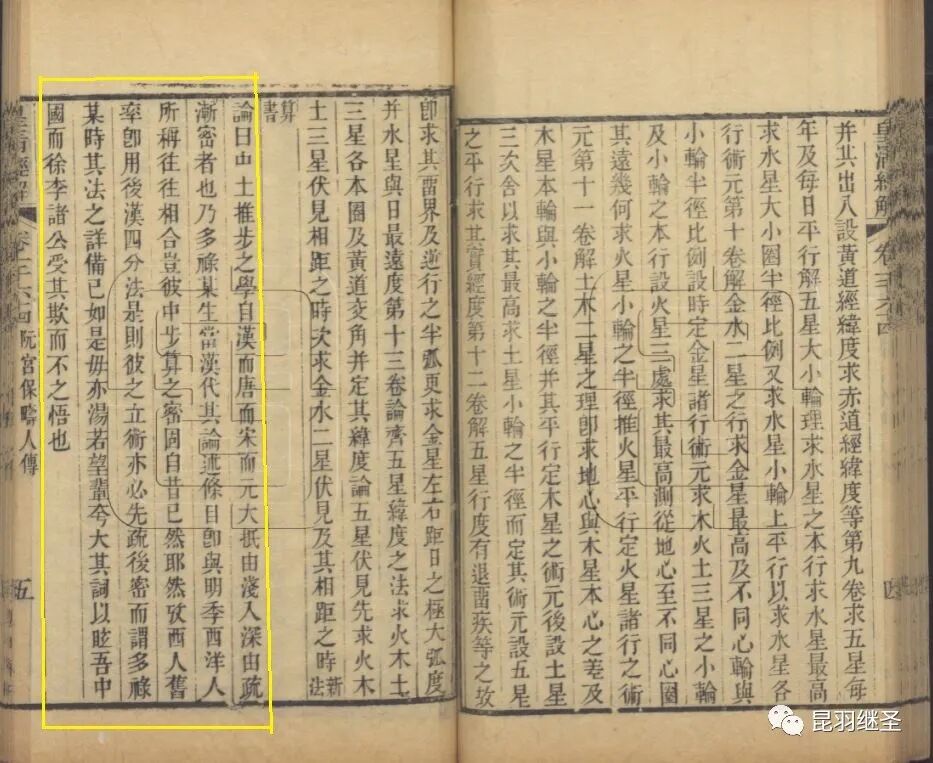 皇清經解
卷千六四
四
并其出入設黃道經緯度求赤道經緯度等第九卷求五星每
年及每日平行解五星大小輪理求水星之本行求水星最高
求水星大小圈半徑比例又求水星小輪上平行以求水星各
行術元第十卷解金水二星之行求金星最高及不同心輪與
小輪半徑比例設時定金星諸行術元求木火土三星之小輪
及小輪之本行設火星三處求其最高測從地心至不同心圈
其遠幾何求火星小輪之半徑推火星平行定火星諸行之術
元第十一卷解土木二星之理卽求地心與木星本心之差及
木星本輪與小輪之半徑并其平行定木星之術元後設土星
三次舍以求其最高求土星小輪之半徑而定其術元設五星
之平行求其實經度第十二卷解五星行度有退畱疾等之故
卽求其畱界及逆行之半弧更求金星左右距日之極大弧度
并水星與日最遠度第十三卷論齊五星緯度之法求火木土
三星各本圈及黃道交角并定其緯度論五星伏見先求火木
土三星伏見相距之時次求金水二星伏見及其相距之時新法
算書
論曰中土推步之學自漢而唐而宋而元大抵由淺入深由疏
漸密者也乃多祿某生當漢代其論述條目卽與明季西洋人
所稱往往相合豈彼中步算之密固自昔已然耶然攷西人舊
率卽用後漢四分法是則彼之立術亦必先疏後密而謂多祿
某時其法之詳備已如是毋亦湯若望輩夸大其詞以眩吾中
國而徐李諸公受其欺而不之悟也
皇清經解
阮宮保疇人傳
五
昆羽继圣